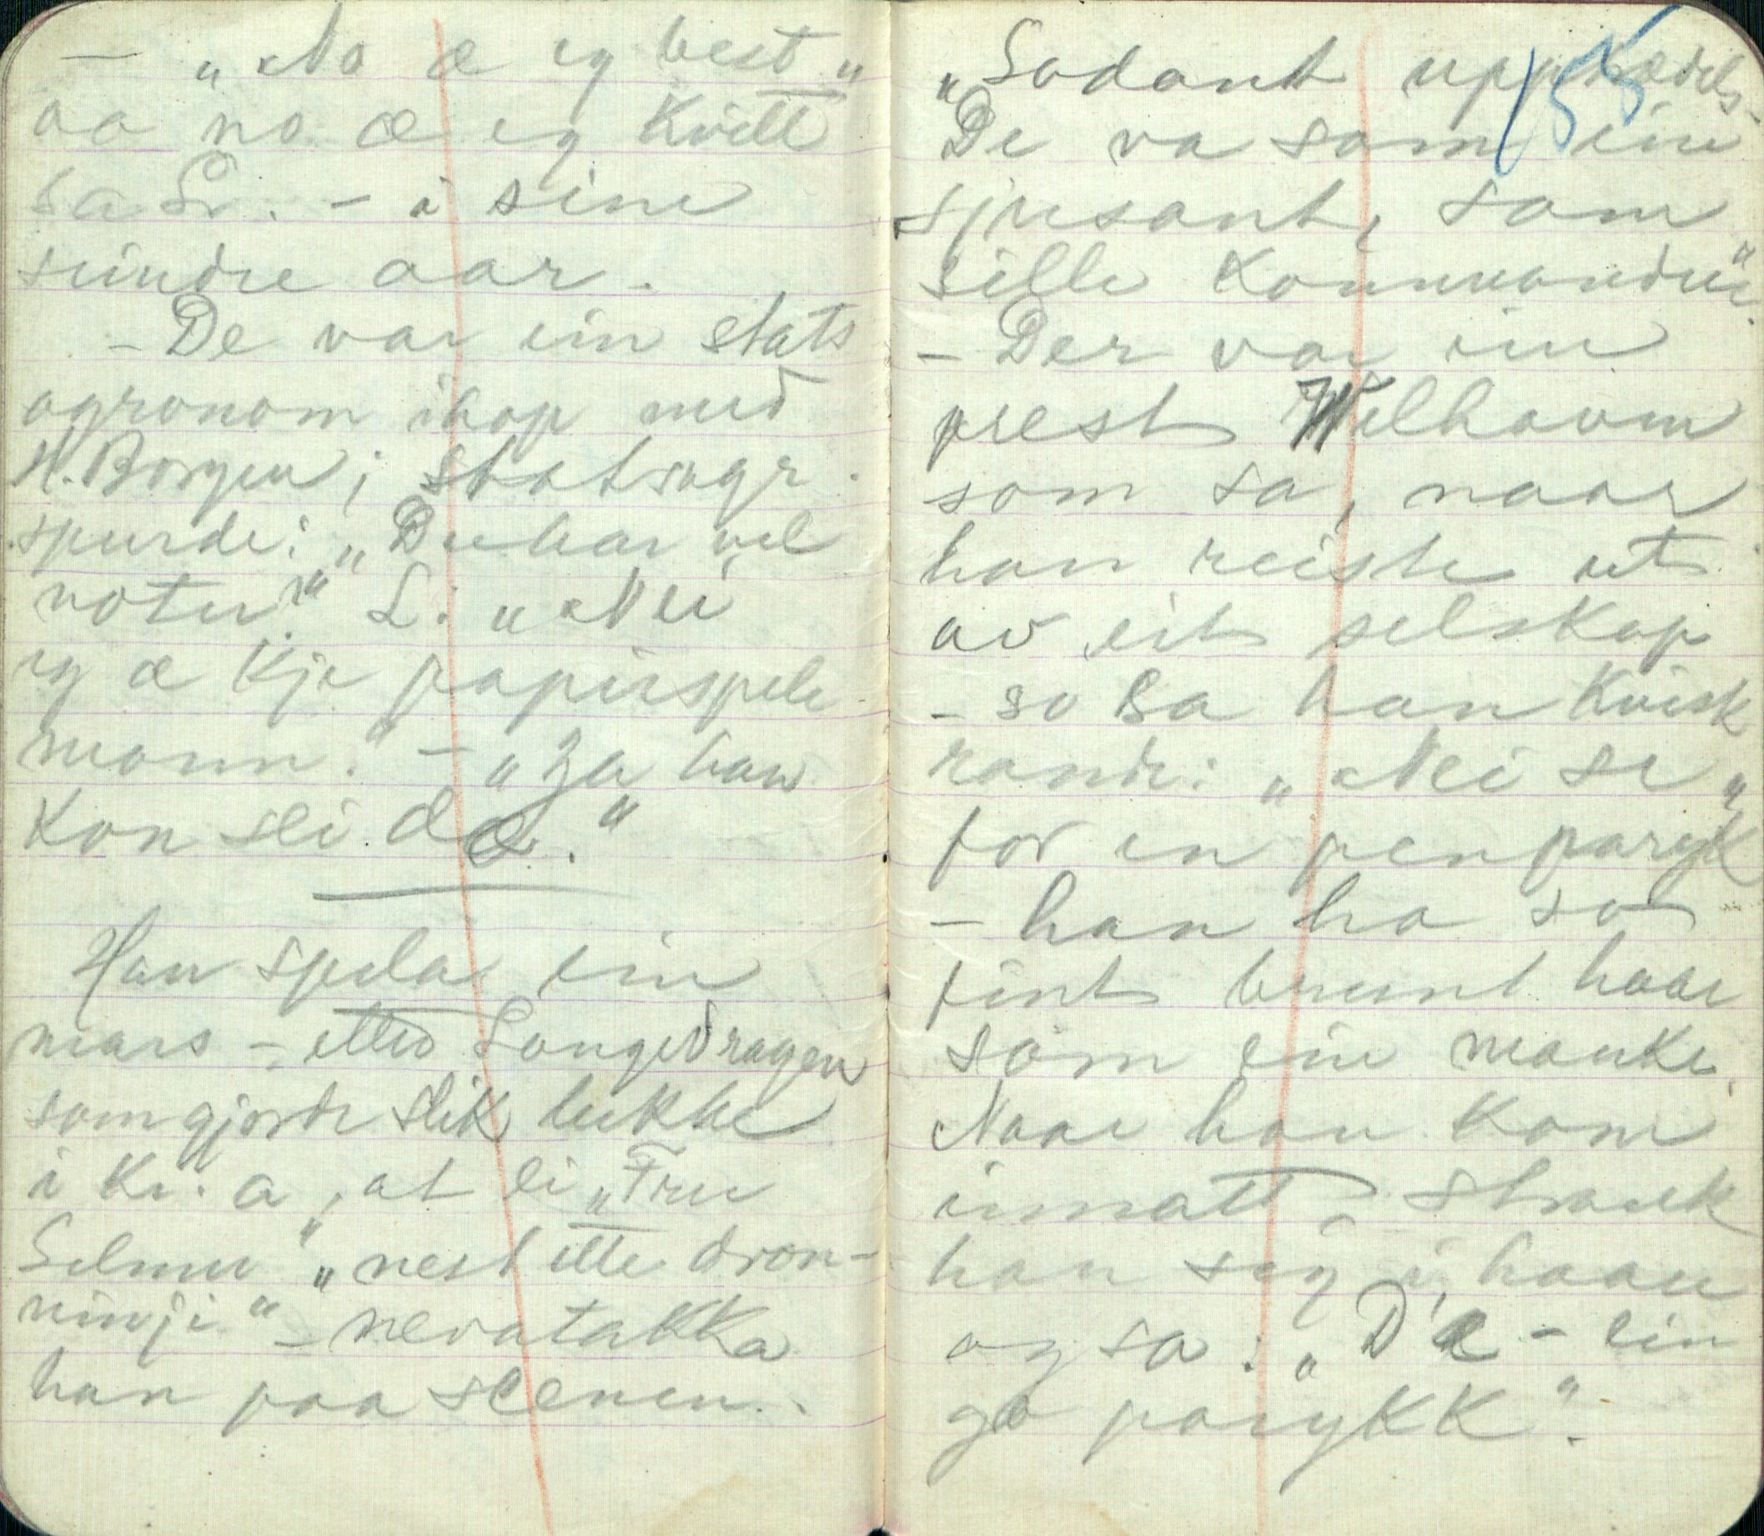 — „No æ eg best„
aa no æ eg kvitt
sa L. – i sine
seindre aar.
– De var ein stats
agronom ihop med
H. Borgen; statsagr.
spurde: „Du har vel
noter?" L: „Nei
eg æ kje papirspele
mann." – „Ja han
kan sei dæ."
Han spela ein
mars – etter Langedragen
som gjorde slik lukke
i Kr. a, at ei „Fru
Selmer" „nest ette dron-
ninji" – nevatakka
han paa scenen.
155
„Sodant
De va som ein
sjusant, som
sille kommandere".
– Der var ein
prest Welhavn
som sa, naar
han reiste ut
av eit selskap
– so sa han kvisk
rande: „Nei se„
for en pen paryk
– han ha so
fint brunt haar
som ein manke.
Naar han kom
innatt strauk
han seg i haare
og sa: „D'æ – ein
go parykk".